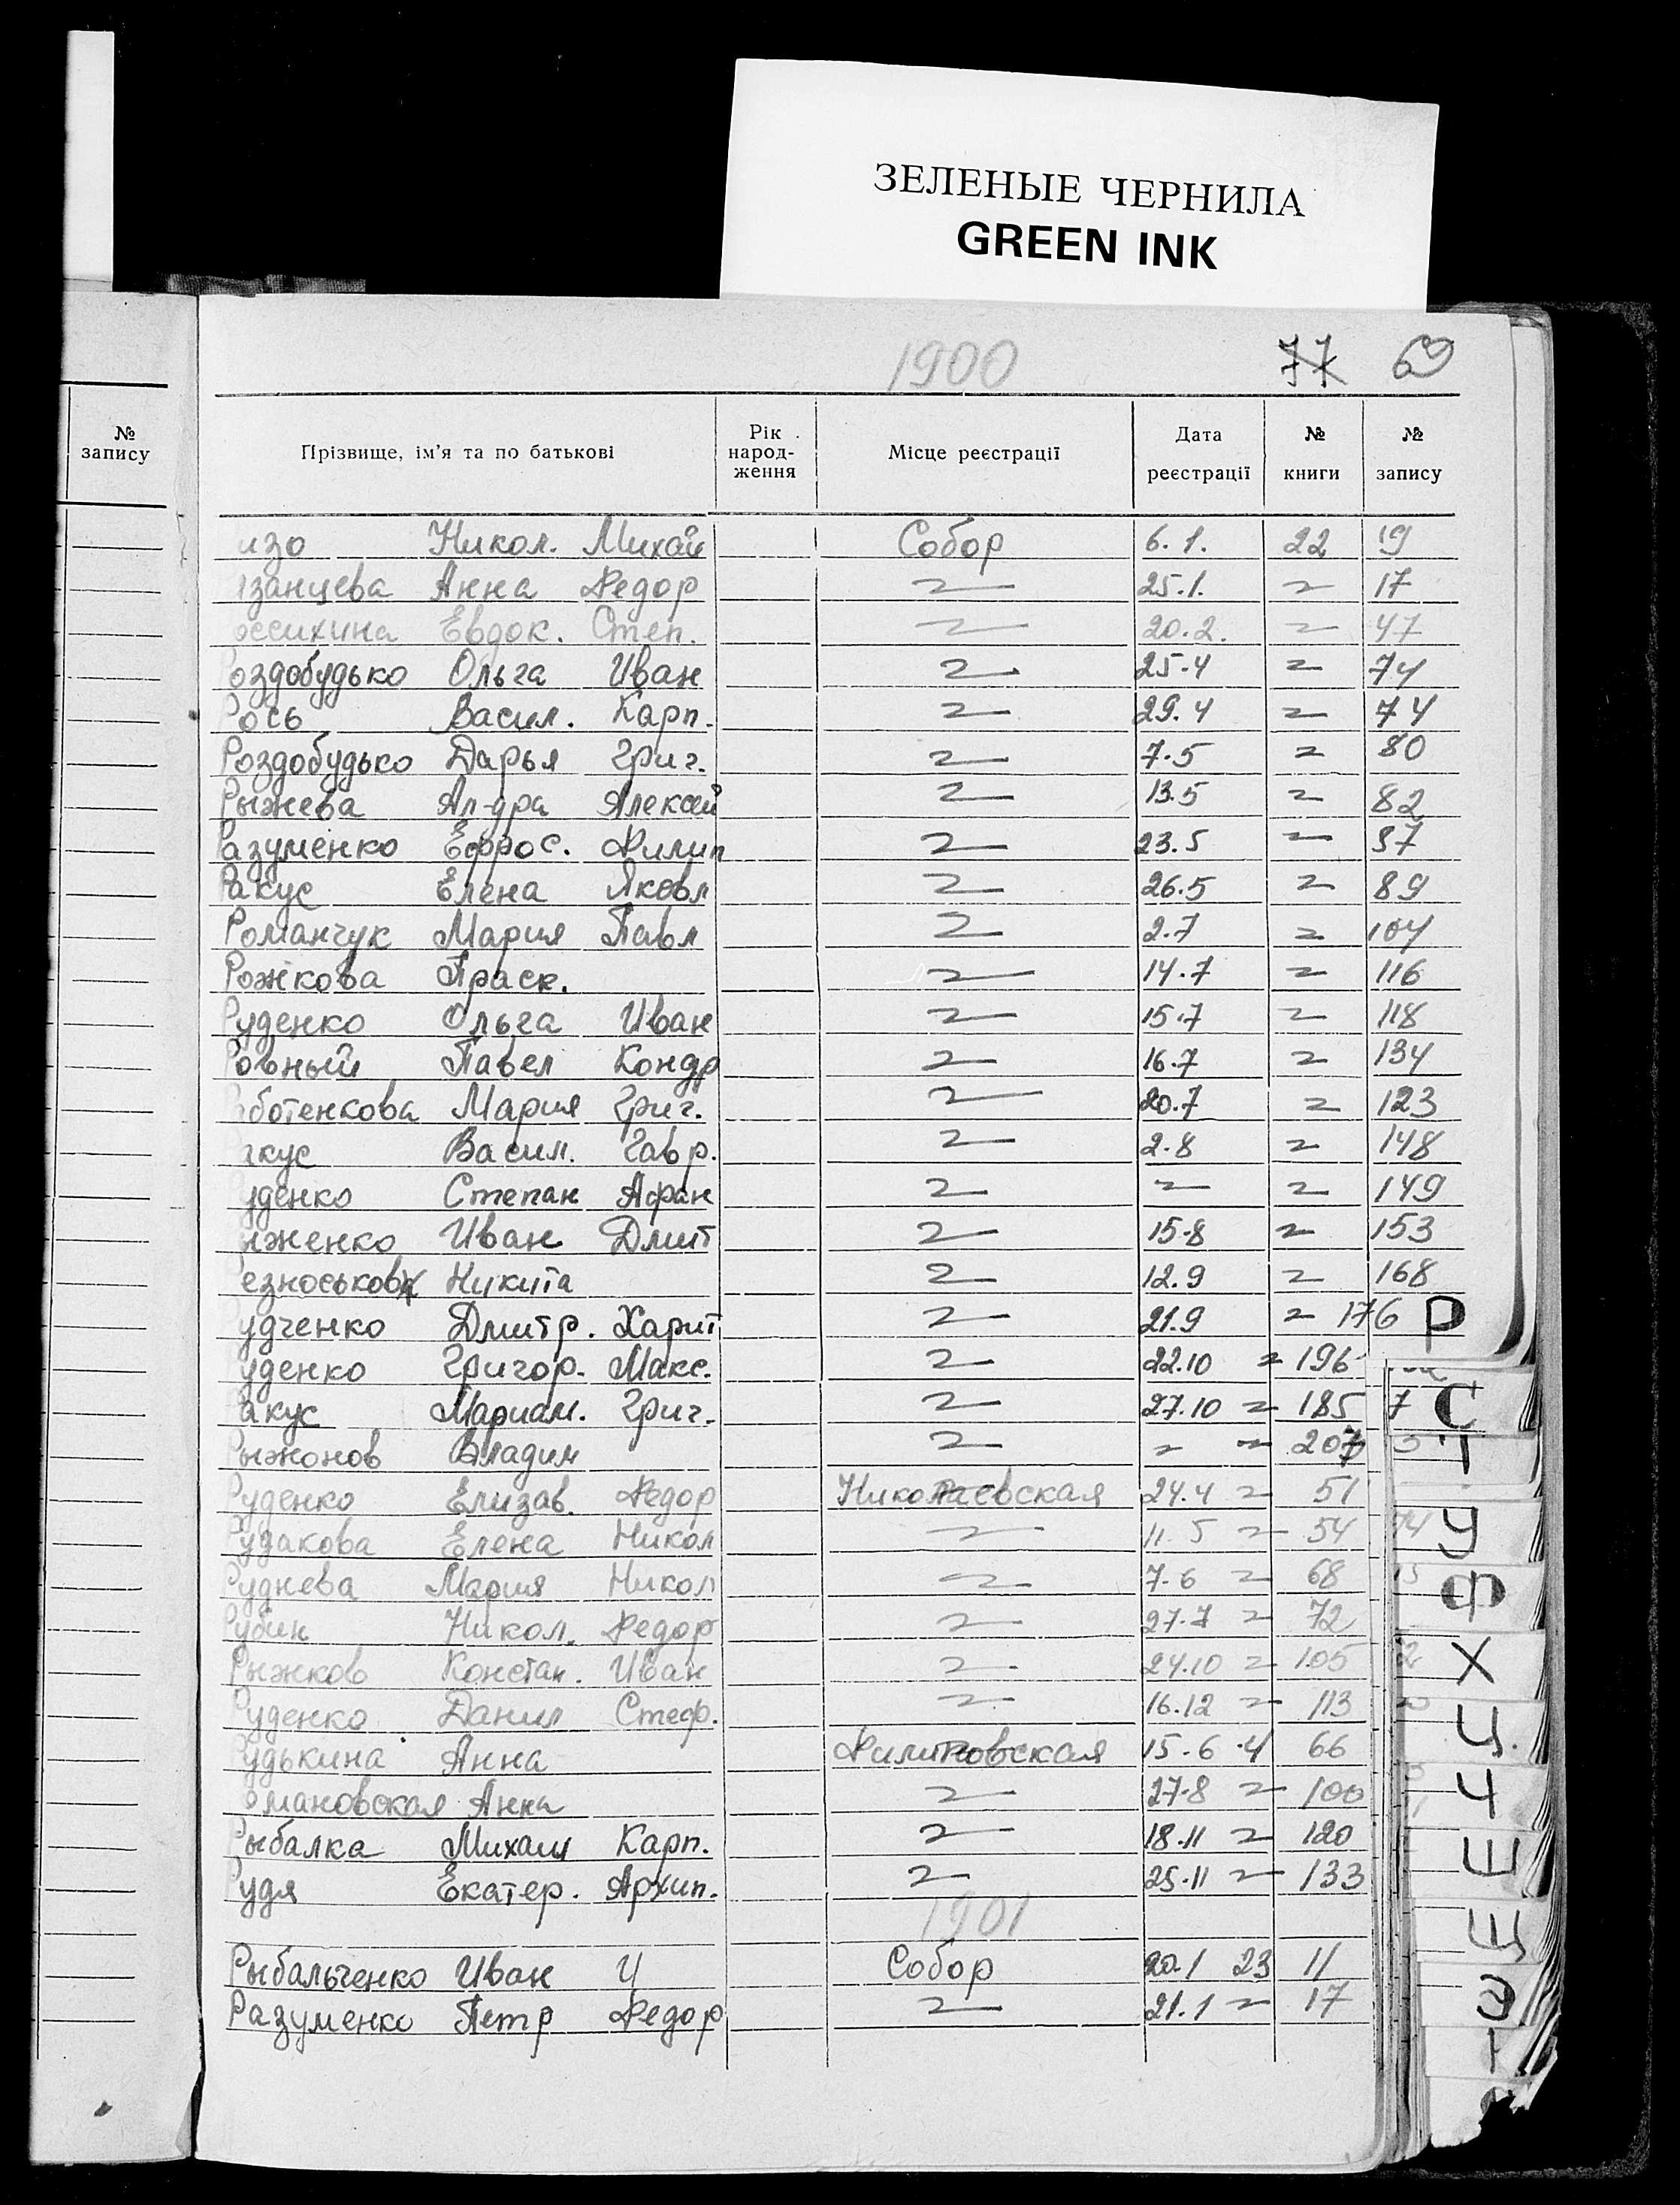 ЗЕЛЕНЫЕ ЧЕРНИЛА
GREEN INK
1900 77 69
№ запису
Прізвище, ім'я та по батькові Рік народ-ження Місце реєстрації Дата реєстрації № книги № запису
изо Никол. Михай Собор 6.1. 22 19
язанцева Анна Федор 〃 25.1. 〃 17
оссихина Евдок. Степ. 〃 20.2. 〃 47
Роздобудько Ольга Иван 〃 25.4 〃 74
Рось Васил. Карп. 〃 29.4 〃 74
Роздобудько Дарья Григ. 〃 7.5 〃 80
Рыжева Ал-дра Алексей 〃 13.5 〃 82
Разуменко Ефрос. Филип 〃 23.5 〃 87
Ракус Елена Яковл 〃 26.5 〃 89
Романчук Мария Павл 〃 2.7 〃 104
Рожкова Праск. 〃 14.7 〃 116
Руденко Ольга Иван 〃 15.7 〃 118
Ровный Павел Кондр 〃 16.7 〃 134
Работенкова Мария Григ. 〃 20.7 〃 123
акус Васил. Гавр. 〃 2.8 〃 148
уденко Степан Афан 〃 〃 〃 149
ыженко Иван Дмит 〃 15.8 〃 153
Резноськов Никита 〃 12.9 〃 168
Рудченко Дмитр. Харит 〃 21.9 〃 176
Руденко Григор. Макс. 〃 22.10 〃 196
Ракус Мариам. Григ. 〃 27.10 〃 185
Рыжонов Владим 〃 〃 〃 207
Руденко Елизав. Федор Николаевская 24.4 〃 51
Рудакова Елена Никол 〃 11.5 〃 54
Руднева Мария Никол 〃 7.6 〃 68
Рубин Никол. Федор 〃 27.7 〃 72
Рыжков Констан. Иван 〃 24.10 〃 105
Руденко Данил Стеф. 〃 16.12 〃 113
Рудькина Анна Филиповская 15.6 4 66
омановская Анна 〃 27.8 〃 100
Рыбалка Михаил Карп. 〃 18.11 〃 120
Рудя Екатер. Архип. 〃 25.11 〃 133
1901
Рыбальченко Иван И Собор 20.1 23 11
Разуменко Петр Федор 〃 21.1 〃 17
Р
С
Т
У
Ф
Х
Ц
Ч
Ш
Щ
Э